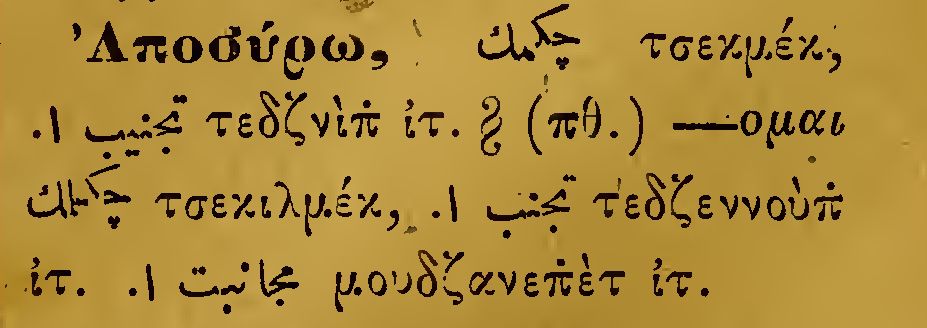 Ἀποσύρω, چكمك τσεκμέκ,
تجنيب ا. τεδζνὶπ̇ ἰτ. § (πθ.) —ομαι
چكلمك τσεκιλμέκ, تجنب ا. τεδζεννοὺπ̇
ἰτ. مجانبت ا. μουδζανεπ̇ὲτ ἰτ.